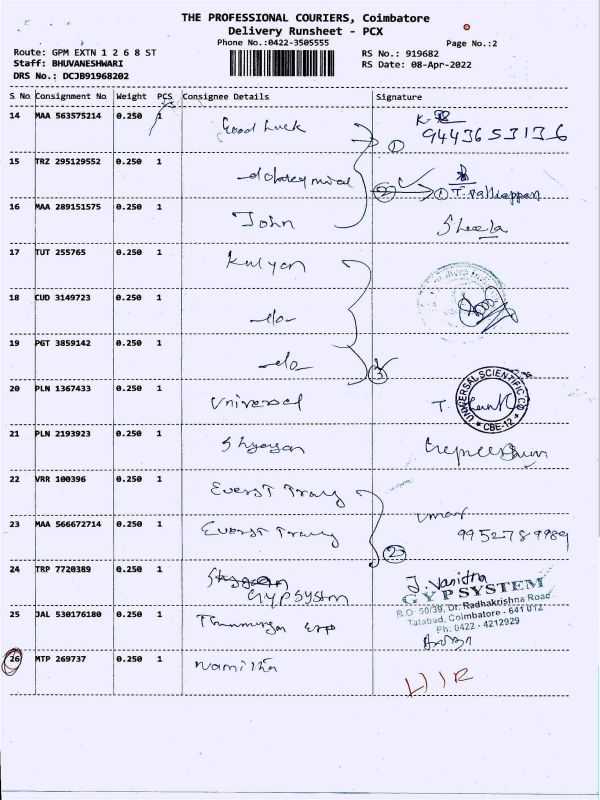 THE PROFESSIONAL COURIERS, Coimbatore
Delivery Runsheet - PCX
Phone No.:0422-3505555
Page No.:2
Route: GPM EXTN 1 2 6 8 ST
Staff: BHUVANESHWARI
DRS No.: DCJB91968202
RS No.: 919682
RS Date: 08-Apr-2022
S No Consignment No Weight PCS Consignee Details Signature
14 MAA 563575214 0.250 1 Good Luck
9443653136
1
15 TRZ 295129552 0.250 1
2 1 T. Palliappan
16 MAA 289151575 0.250 1 John Sheela
17 TUT 255765 0.250 1 Kalyan
18 CUD 3149723 0.250 1 -do-
19 PGT 3859142 0.250 1 -do-
3
20 PLN 1367433 0.250 1 Universal T.
UNIVERSAL SCIENTIFIC CO
* CBE-12 *
21 PLN 2193923 0.250 1
22 VRR 100396 0.250 1 Everst Travy
23 MAA 566672714 0.250 1 Everst Travy umar
9952789989
2
24 TRP 7720389 0.250 1 GYPSYSTM J. Vanitha
GYPSYSTEM
B.O: 50/39, Dr. Radhakrishna Road
Tatabad, Coimbatore - 641 012
Ph: 0422 - 4212929
25 JAL 530176180 0.250 1
26 MTP 269737 0.250 1 Namitha